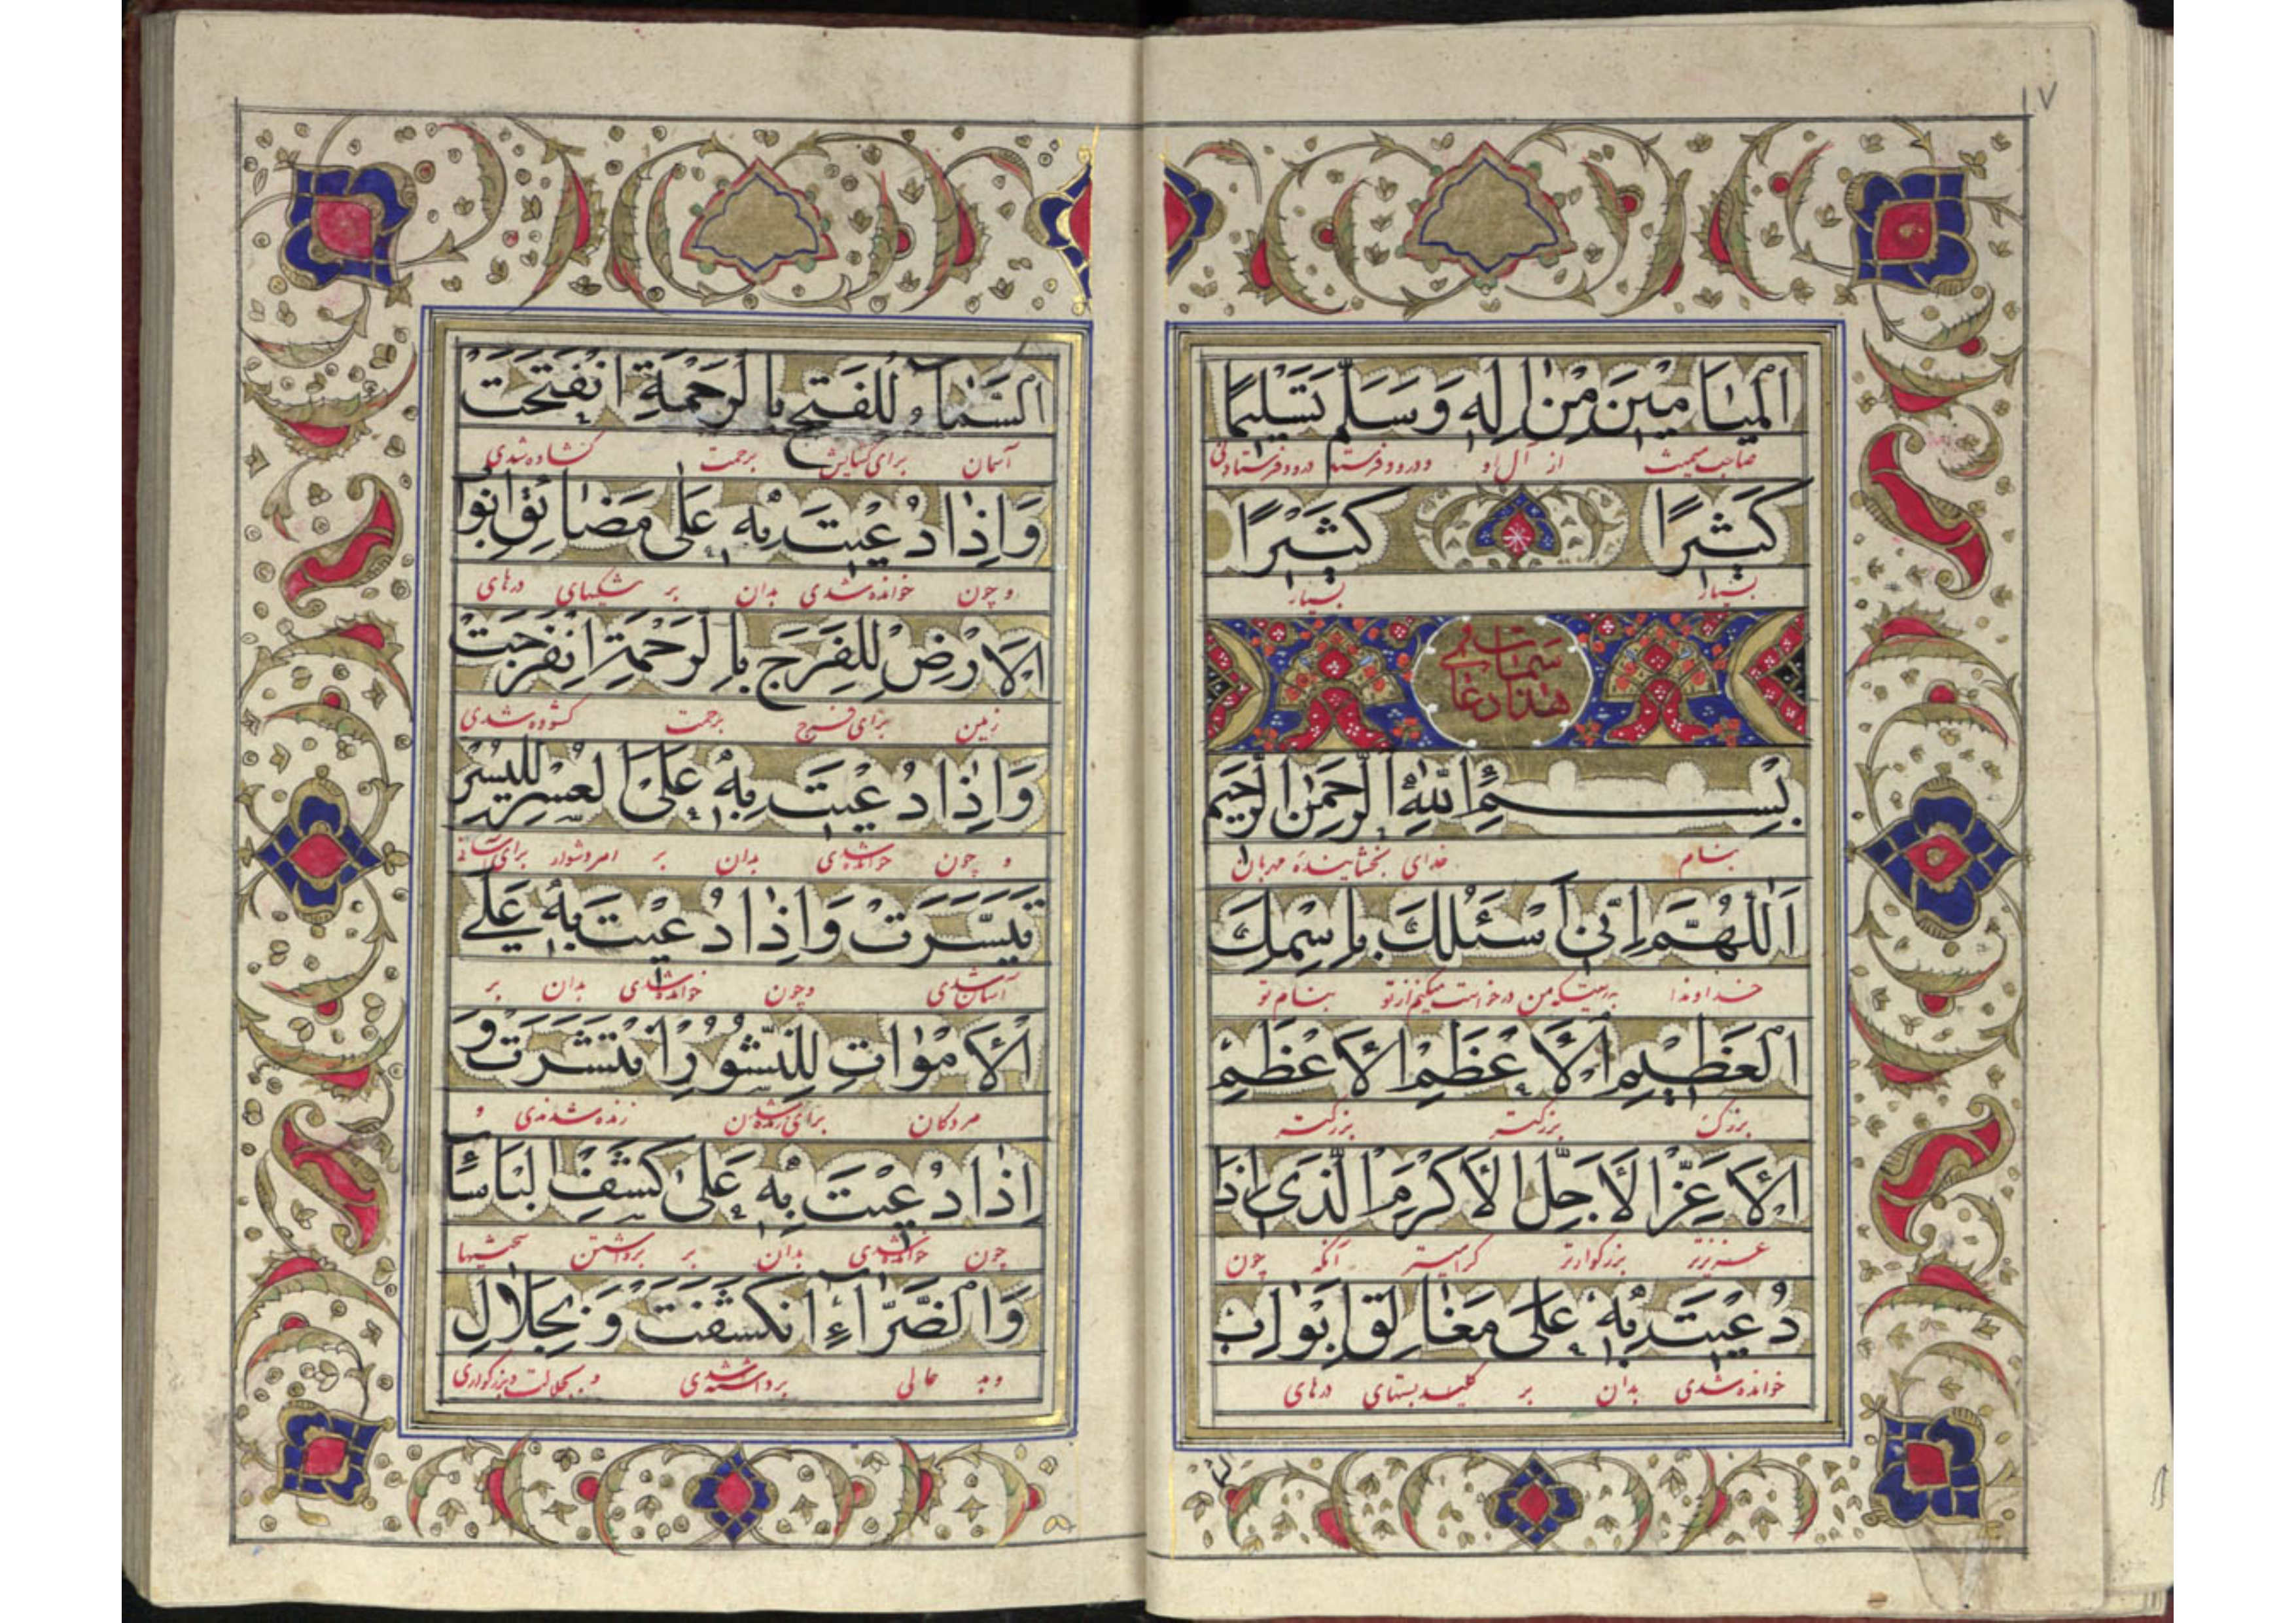 ١٧
اَلْمَيٰامينَ مِنْ اٰلِهِ وَسَلَّمَ تَسْليمًا
صاحب میمنت از آل او و درود فرستد درود فرستادنی
كَثيرًا كَثيرًا
بسیار بسیار
هذا دعای سمات
بِسْمِ اللّٰهِ الرَّحْمٰنِ الرَّحيمِ
بنام خدای بخشاینده مهربان
اَللّٰهُمَّ اِنّى اَسْئَلُكَ بِاِسْمِكَ
خداوندا بدرستیکه من درخواست میکنم از تو بنام تو
الْعَظيمِ الْاَعْظَمِ الْاَعْظَمِ
بزرک بزرکتر بزرکتر
الْاَعَزِّ الْاَجَلِّ الْاَكْرَمِ الَّذى اِذٰا
عزیزتر بزرکوارتر کرامیتر آنکه چون
دُعيتَ بِهِ عَلىٰ مَغٰالِقِ اَبْوٰابِ
خوانده شدی بدان بر کلید بستهای درهای
السَّمٰآءِ لِلْفَتْحِ بِالرَّحْمَةِ انْفَتَحَتْ
آسمان برای کشایش برحمت کشاده شدی
وَاِذٰا دُعيتَ بِهِ عَلىٰ مَضٰائِقِ اَبْوٰا
و چون خوانده شدی بدان بر تنکیهای درهای
الْاَرْضِ لِلْفَرَجِ بِالرَّحْمَةِ انْفَرَجَتْ
زمین برای فرج برحمت کشوده شدی
وَاِذٰا دُعيتَ بِهِ عَلَى الْعُسْرِ لِلْيُسْرِ
و چون خوانده شدی بدان بر امر دشوار برای آسانی
تَيَسَّرَتْ وَاِذٰا دُعيتَ بِهِ عَلَى
آسان شدی و چون خوانده شدی بدان بر
الْاَمْوٰاتِ لِلنُّشُورِ انْتَشَرَتْ وَ
مردکان برای زنده شدن زنده شدندی و
اِذٰا دُعيتَ بِهِ عَلىٰ كَشْفِ الْبَاْسٰاءِ
چون خوانده شدی بدان بر برداشتن سختیها
وَالضَّرّٰآءِ انْكَشَفَتْ وَ بِجَلٰالِ
و بد حالی برداشته شدی و بجلالت و بزرکواری